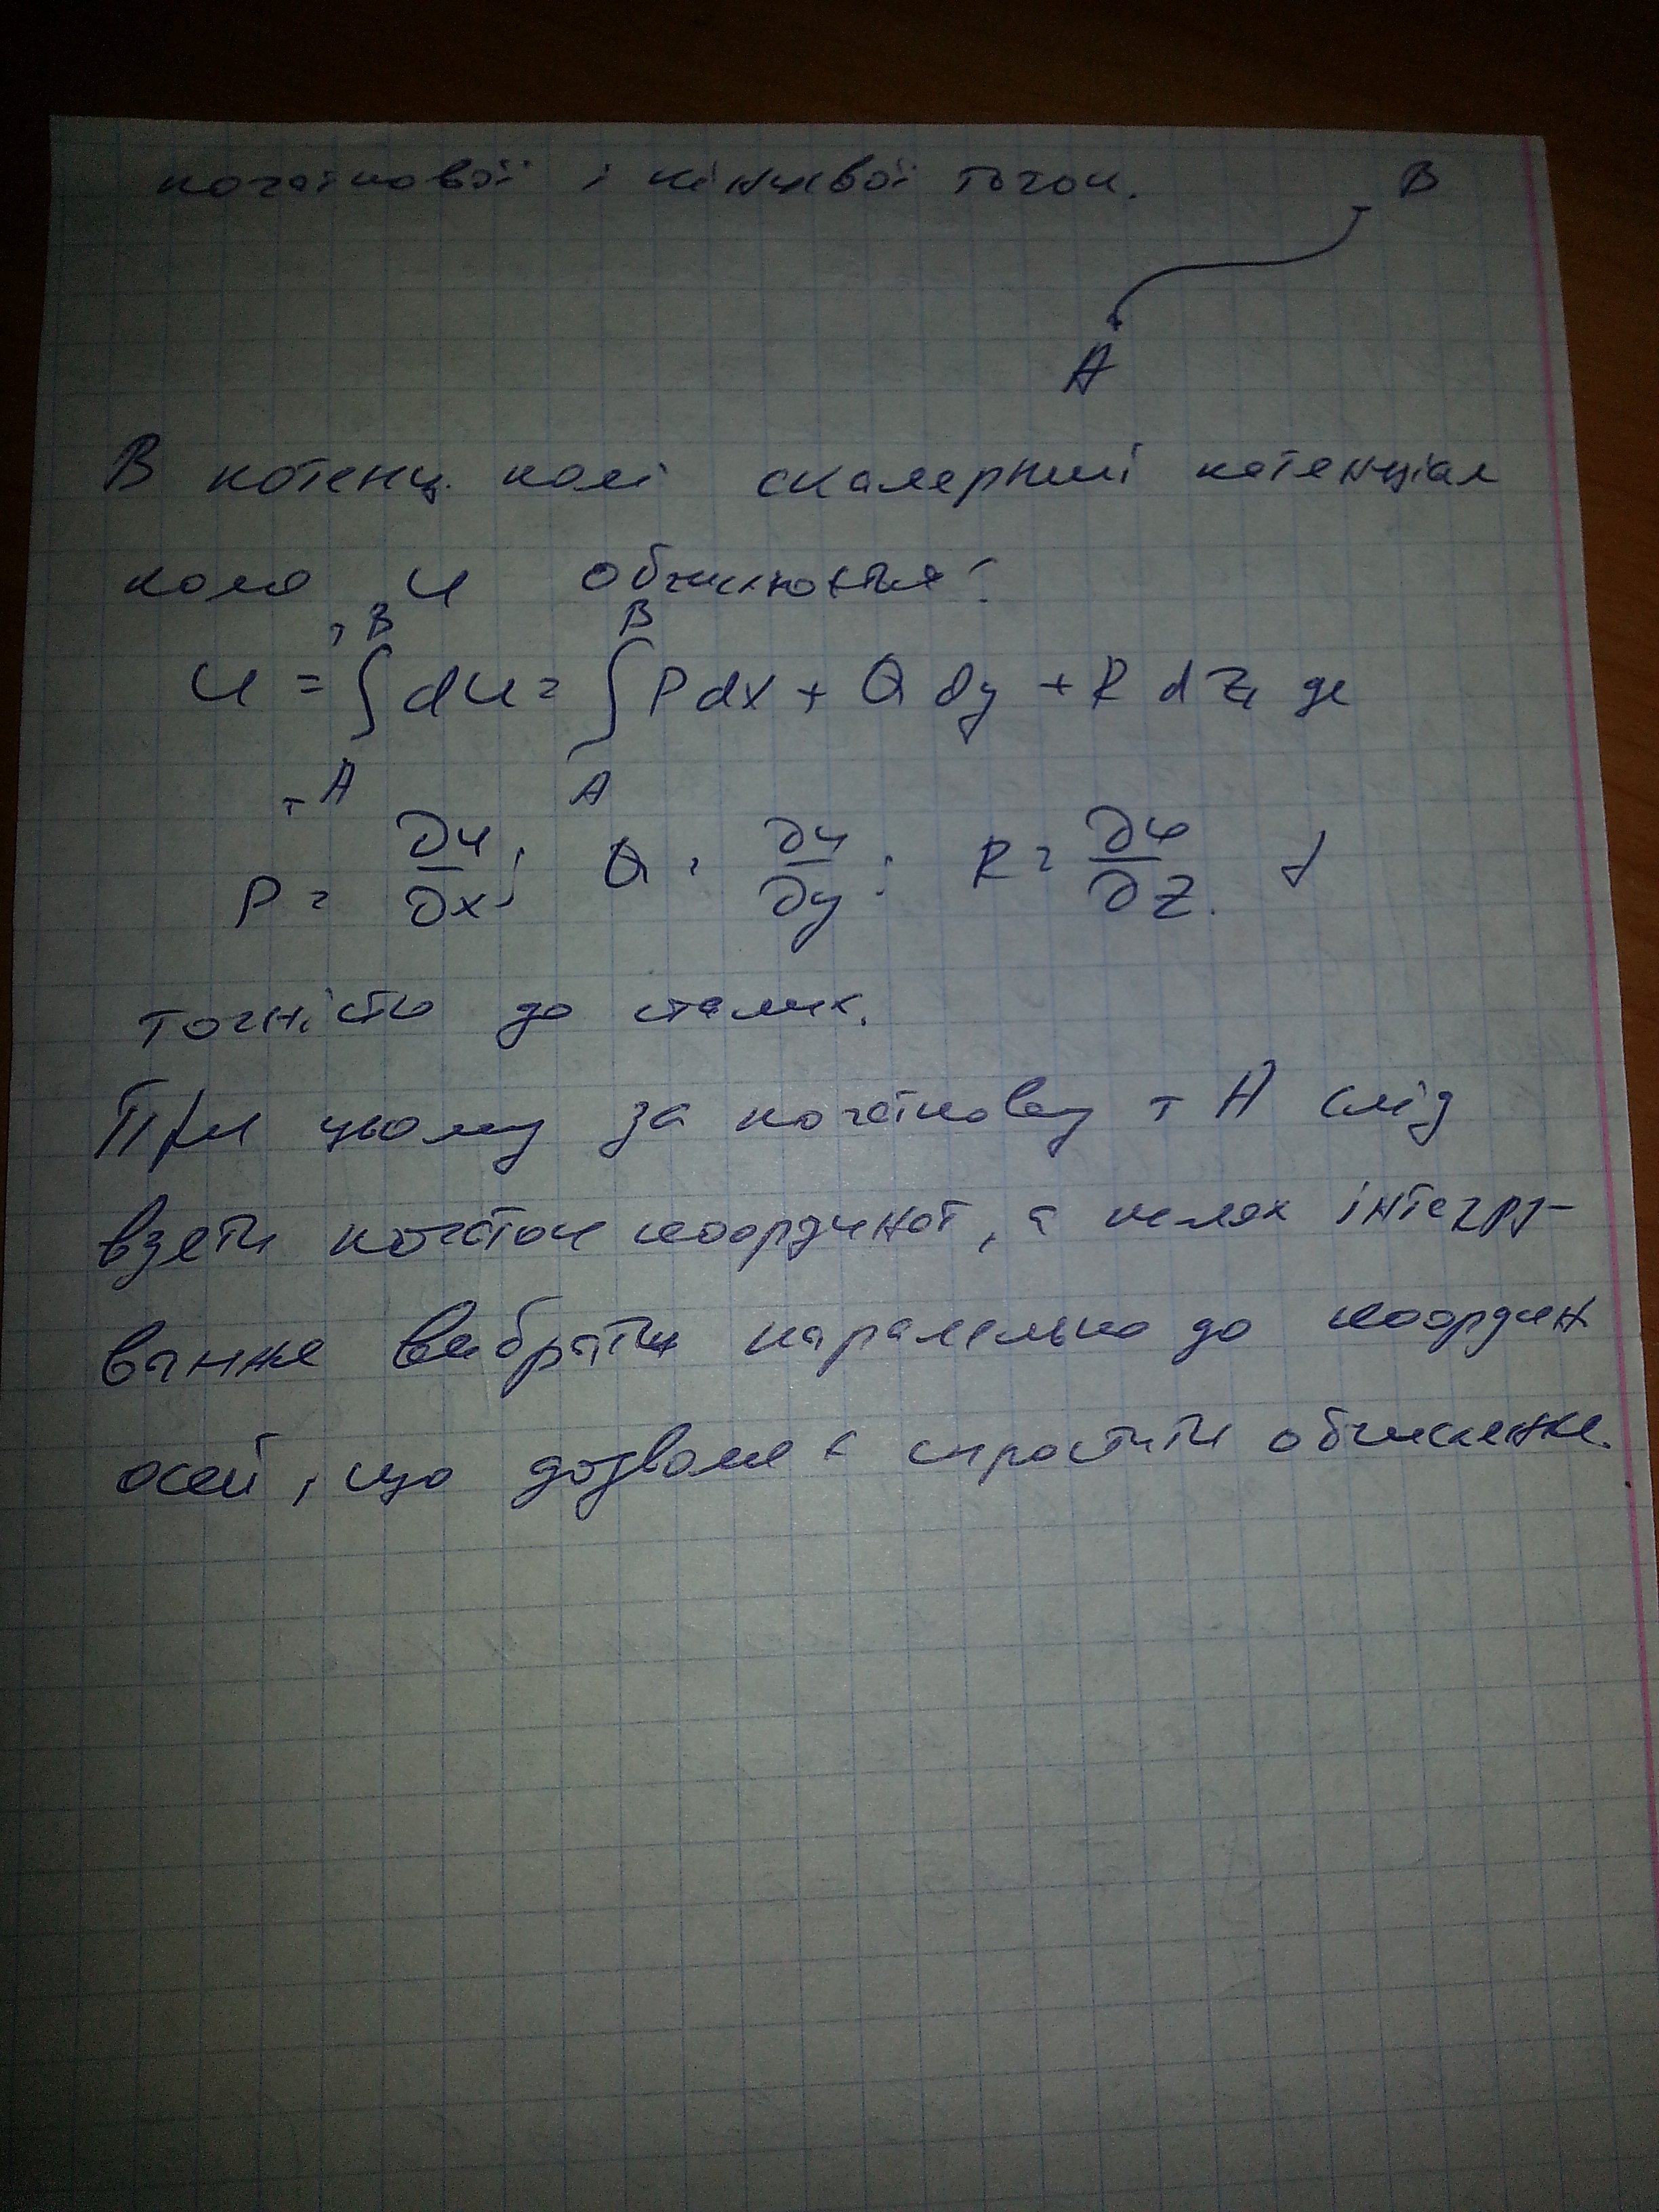 початкової і кінцевої точок.
B
A
В потенц. полі скалярний потенціал
поля u обчислюється:
u = ∫ du = ∫ Pdx + Q dy + R dz, де
т B B
т A A
P = ∂u/∂x; Q = ∂u/∂y; R = ∂u/∂z. з
точністю до сталих.
При цьому за початкову т A слід
взяти початок координат, а шлях інтегру-
вання вибрати паралельно до координ
осей, що дозволяє спростити обчислення.